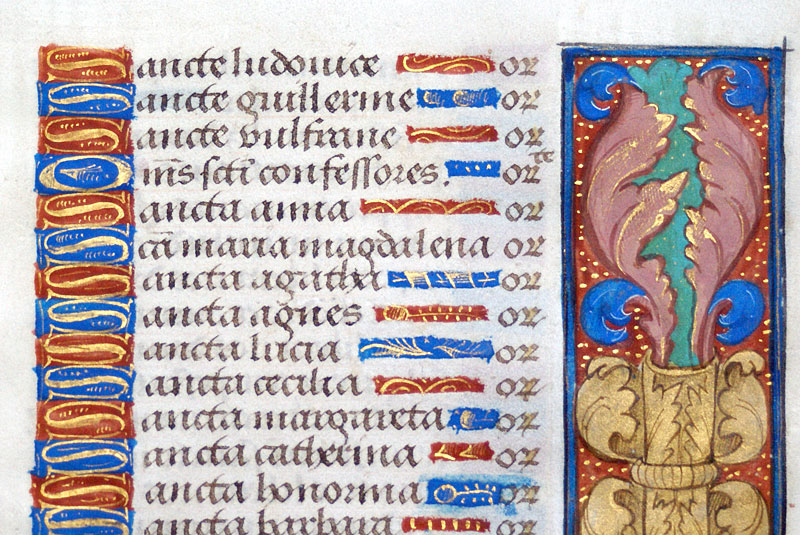 Sancte ludouice or
Sancte guillerme or
Sancte vulfrane or
Om̄s sc̄ti confessores. orte
Sancta anna or
Sc̄a maria magdalena or
Sancta agatha or
Sancta agnes or
Sancta lucia or
Sancta cecilia or
Sancta margareta or
Sancta catherina or
Sancta honorina or
Sancta barbara or